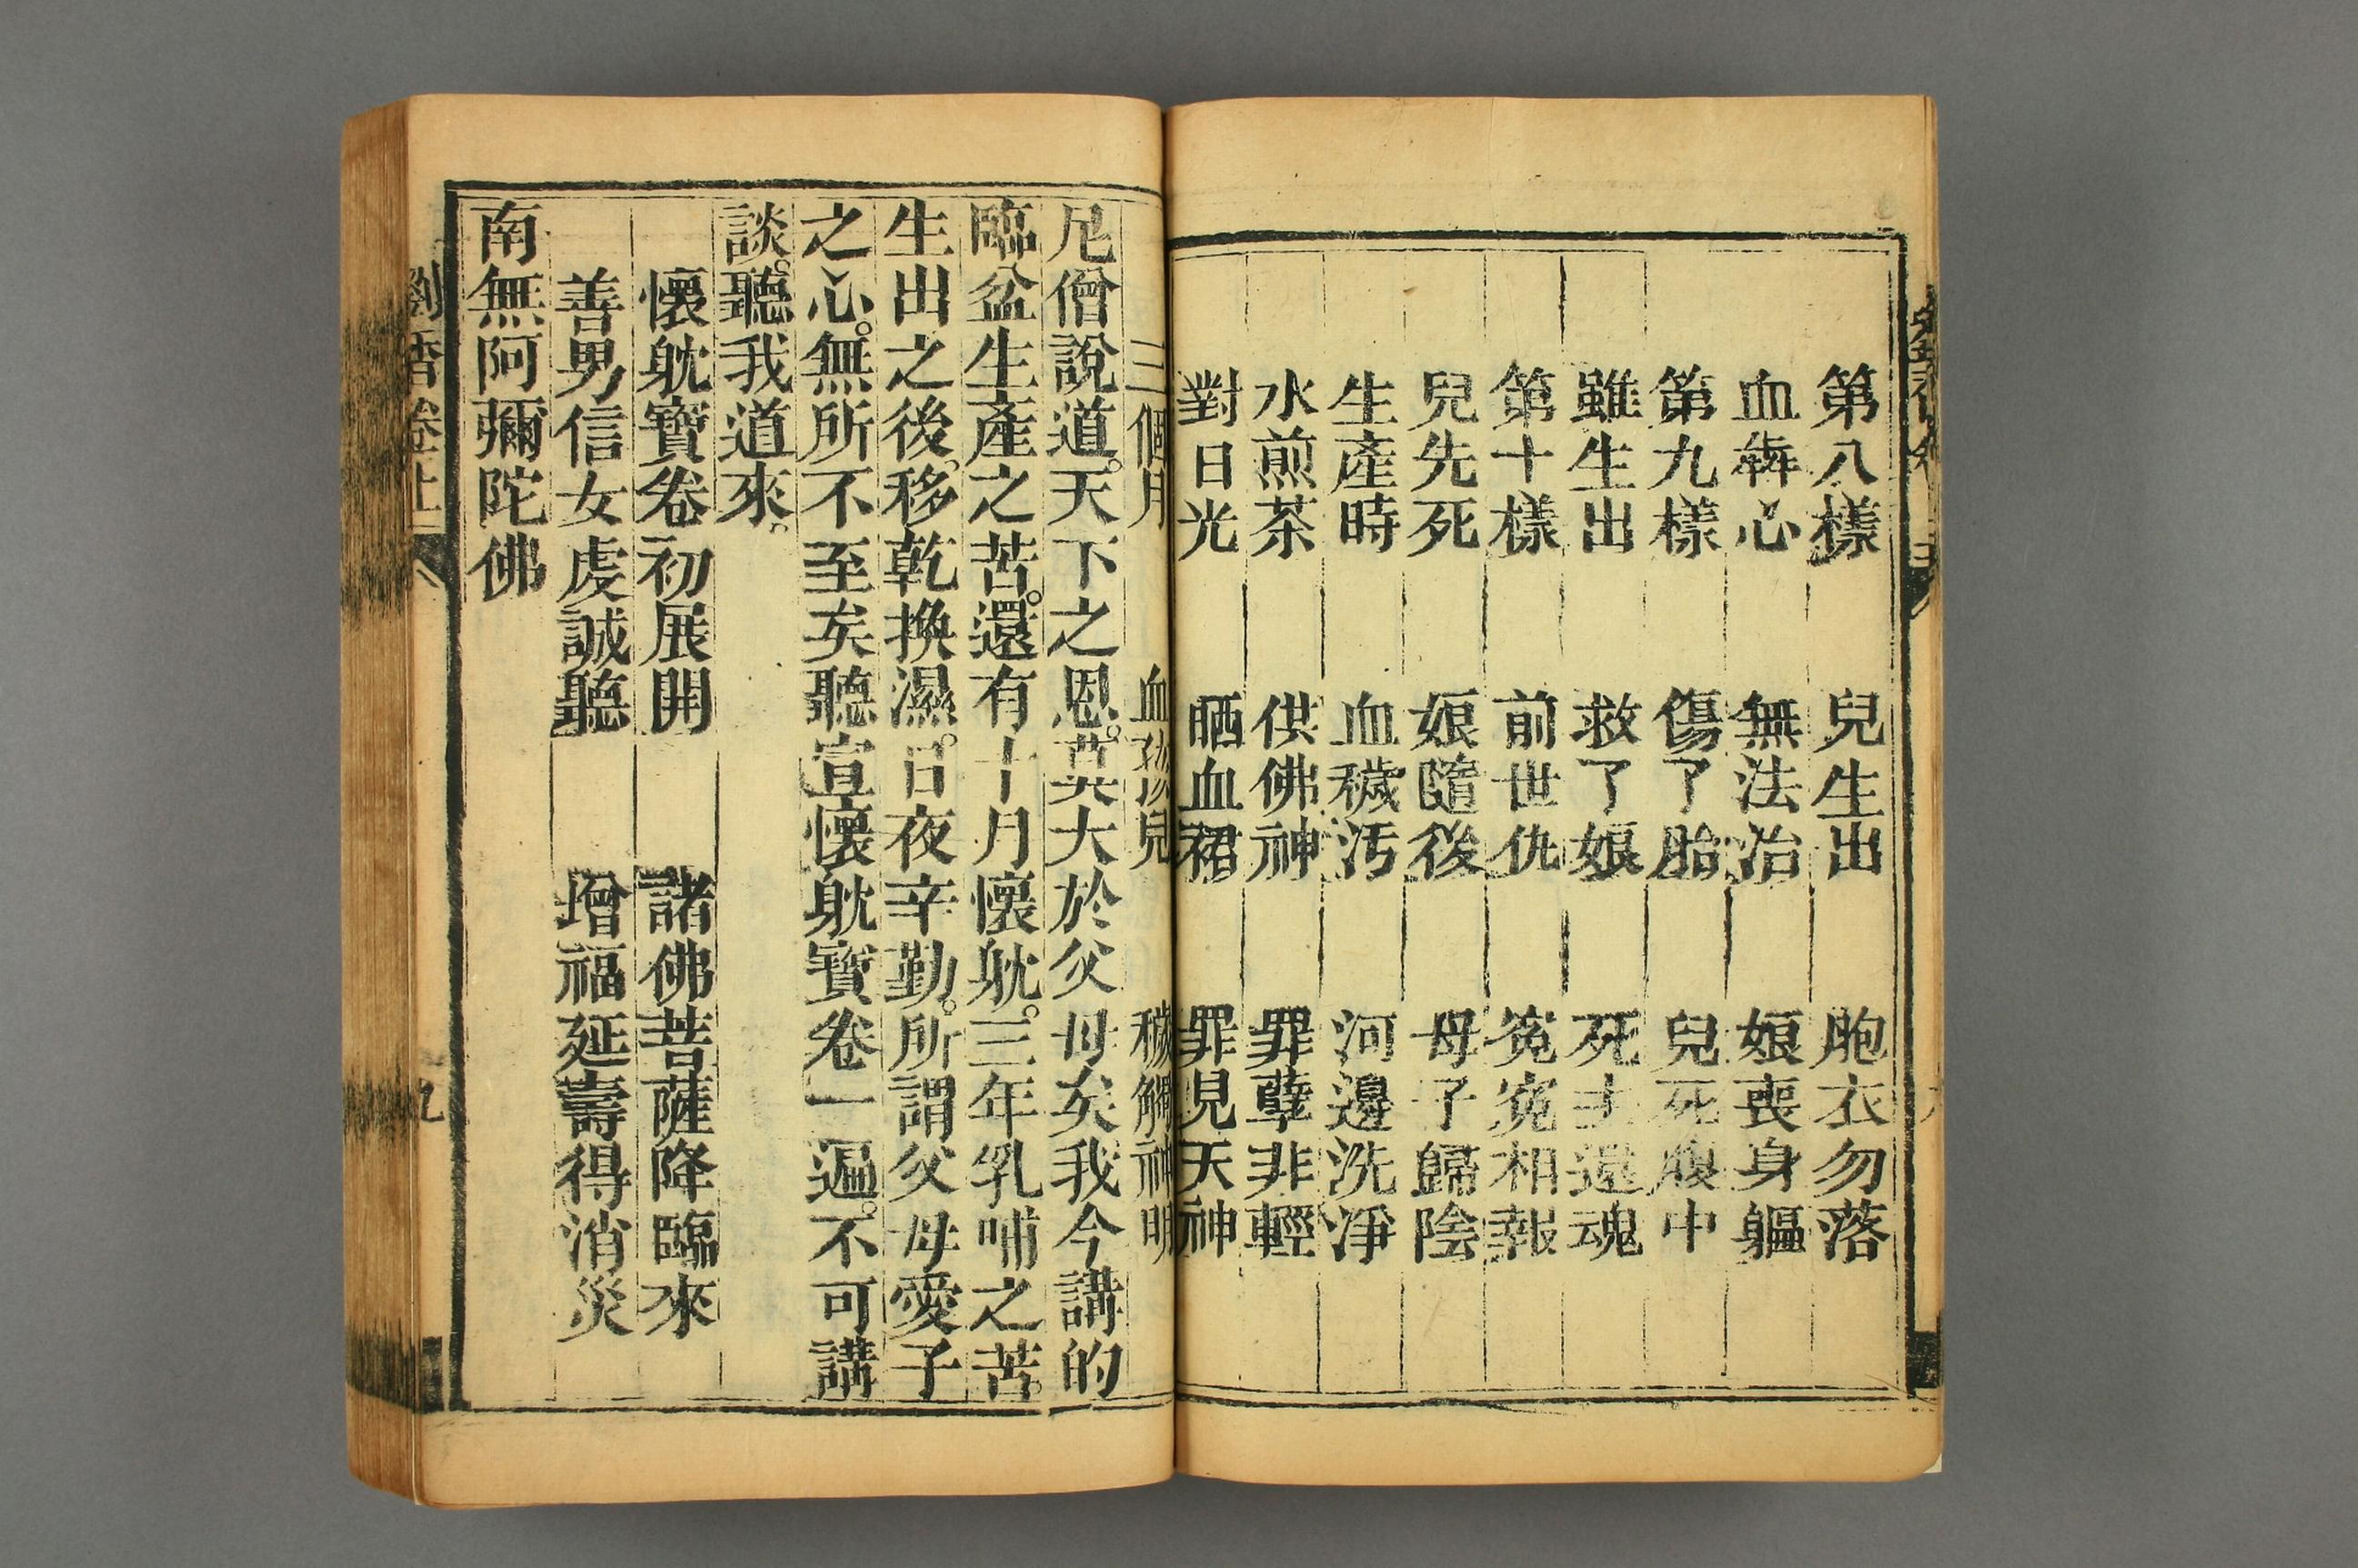 第八樣　兒生出　胞衣勿落
血犇心　無法治　娘喪身軀
第九樣　傷了胎　兒死腹中
雖生出　救了娘　死去還魂
第十樣　前世仇　寃寃相報
兒先死　娘隨後　母子歸陰
生產時　血穢汚　河邊洗凈
水煎茶　供佛神　罪孽非輕
對日光　晒血裙　罪見天神
三個月　血孩兒　穢觸神明
尼僧說道。天下之恩。莫大於父母矣我今講的
臨盆生產之苦。還有十月懷躭。三年乳哺之苦。
生出之後。移乾換濕。日夜辛勤。所謂父母愛子
之心。無所不至矣聽宣懷躭寶卷一遍。不可講
談。聽我道來。
懷躭寶卷初展開　諸佛菩薩降臨來
善男信女虔誠聽　增福延壽得消災
南無阿彌陀佛
劉香卷上　九